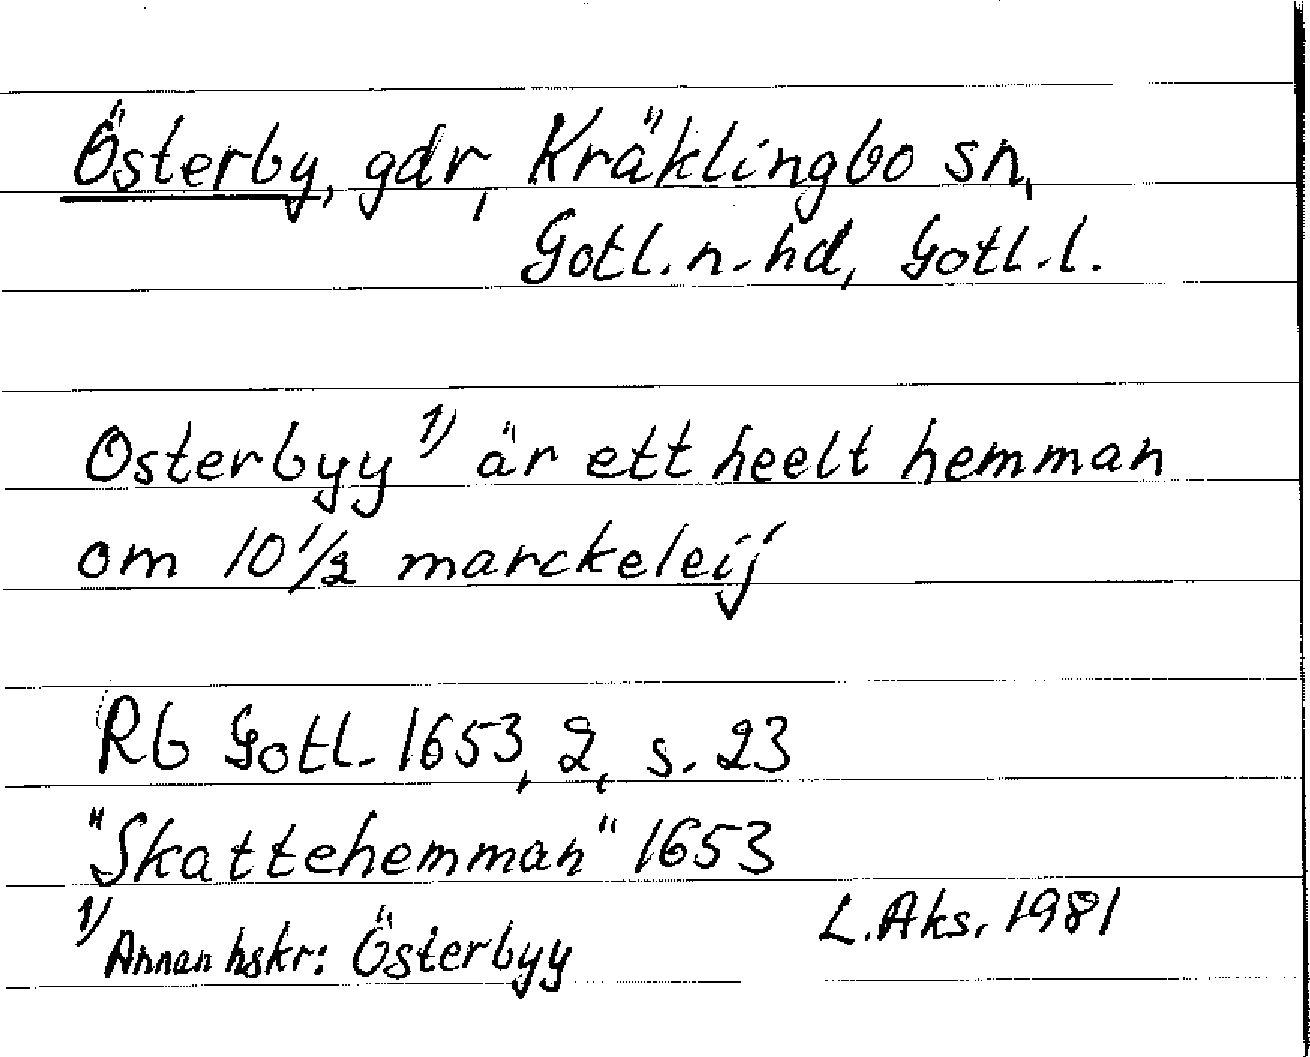 Österby, gdr, Kräklingbo sn,
Gotl. n. hd, Gotl. l.
Osterbyy 1) är ett heelt hemman
om 10 1/2 marckeleij
Rb Gotl. 1653, 2, s. 23
"Skattehemman" 1653
1) Annan hskr: Österbyy
L. Aks. 1981